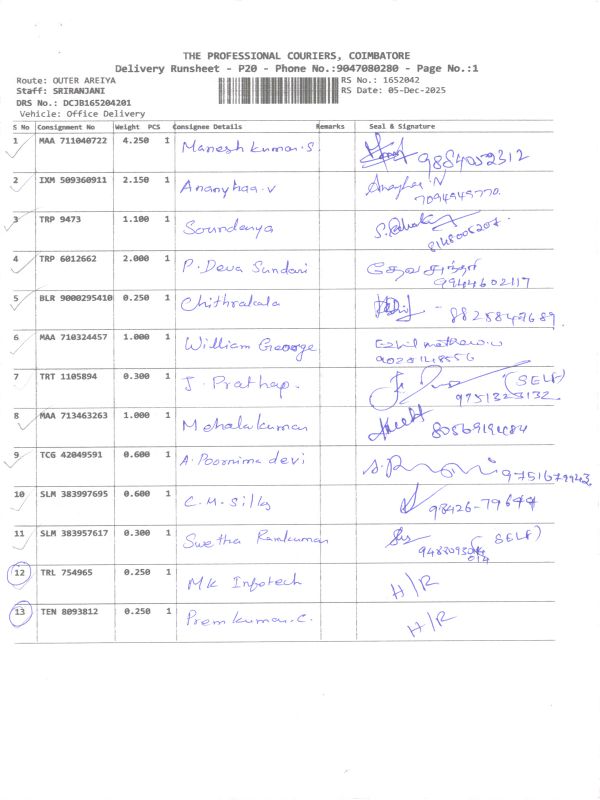 THE PROFESSIONAL COURIERS, COIMBATORE
Delivery Runsheet - P20 - Phone No.:9047080280 - Page No.:1
Route: OUTER AREIYA RS No.: 1652042
Staff: SRIRANJANI RS Date: 05-Dec-2025
DRS No.: DCJB165204201
Vehicle: Office Delivery
S No Consignment No Weight PCS Consignee Details Remarks Seal & Signature
1 MAA 711040722 4.250 1 Manesh kumar.S 9884052312
2 IXM 509360911 2.150 1 Ananyhaa.v
7094949770.
3 TRP 9473 1.100 1 Soundarya
8148006207.
4 TRP 6012662 2.000 1 P.Deva Sundari தேவசுந்தரி
9944602117
5 BLR 9000295410 0.250 1 Chithralala - 8825842689.
6 MAA 710324457 1.000 1 William George
7 TRT 1105894 0.300 1 J. Prathap. (SELF)
9751323132
8 MAA 713463263 1.000 1 Mohalakumar 8056919484
9 TCG 42049591 0.600 1 A.Poornima devi 9751679943
10 SLM 383997695 0.600 1 C.M.Silks 98426-79644
11 SLM 383957617 0.300 1 Swetha Ramkumar (SELF)
12 TRL 754965 0.250 1 MK Infotech H/R
13 TEN 8093812 0.250 1 Premkumar.C. H/R